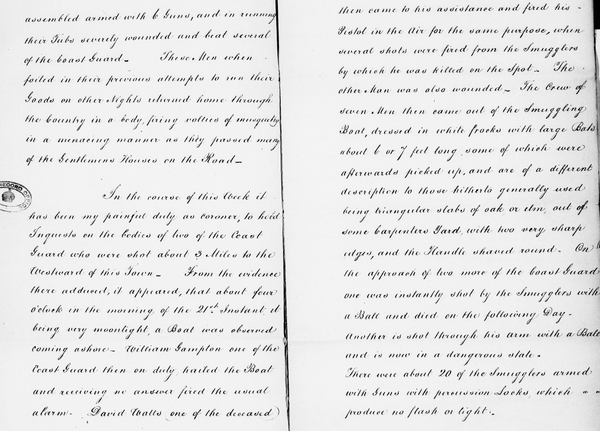 assembled armed with 6 Guns, and in running
their Tubs severely wounded and beat several
of the Coast Guard_ These Men when
foiled in their previous attempts to run their
Goods on other Nights returned home through
the Country in a body, firing vollies of musquetry
in a menacing manner as they passed many
of the Gentlemens Houses on the Road_
In the course of this Week it
has been my painful duty as coroner, to hold
Inquests on the bodies of two of the Coast
Guard who were shot about 3 Miles to the
Westward of this Town_ From the evidence
there adduced, it appeared, that about four
o'clock in the morning of the 21st Instant it
being very moonlight, a Boat was observed
coming ashore_ William Gampton one of the
Coast Guard then on duty hailed the Boat
and receiving no answer fired the usual
alarm. David Watts (one of the deceased)
then came to his assistance and fired his
Pistol in the Air for the same purpose, when
several shots were fired from the Smugglers
by which he was killed on the Spot_ The
other Man was also wounded_ The Crew of
seven Men then came out of the Smuggling
Boat, dressed in white frocks with large Bats
about 6 or 7 feet long some of which were
afterwards picked up, and are of a different
description to those hitherto generally used
being triangular slabs of oak or elm, out of
some Carpenters Yard, with two very sharp
edges, and the Handle shaved round. On
the approach of two more of the Coast Guard
one was instantly shot by the Smugglers with
a Ball and died on the following Day_
Another is shot through his Arm with a Ball
and is now in a dangerous state_
There were about 20 of the Smugglers armed
with Guns with percussion Locks, which
produce no flash or light_